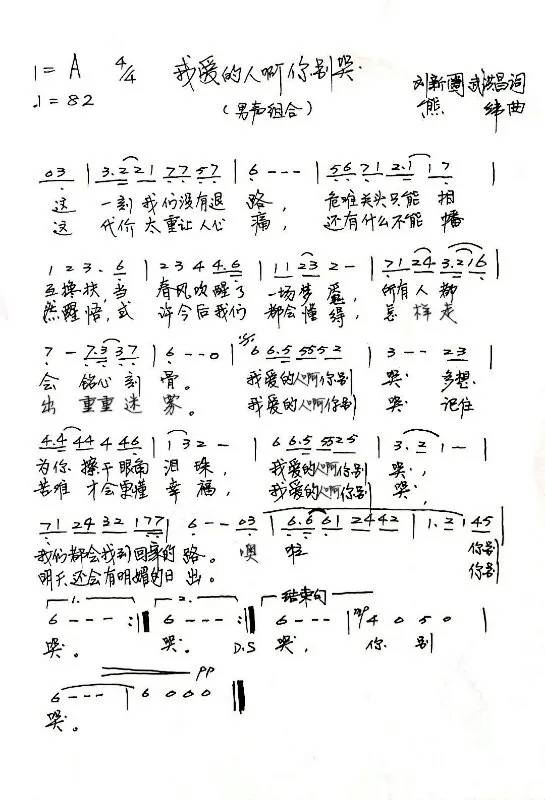 1=A 4/4 我爱的人啊你别哭 刘新圈 武洪昌词
♩=82 (男声组合) 熊纬曲
03 | 3.221 77 57 | 6 - - - | 56 71 2.1 17 |
这 一刻我们没有退 路, 危难关头只能 相
这 代价太重让人心 痛, 还有什么不能 幡
1 2 3. 6 | 2 3 4 4.6 | 11 23 2 - | 71 24 3.216 |
互搀扶,当 春风吹醒了 一场梦魇, 所有人都
然醒悟,或 许今后我们 都会懂得, 怎样走
7 - 7.3 37 | 6 - - 0 | 6 6.5 5552 | 3 - - 23 |
会 铭心刻 骨。 我爱的人啊你别 哭 多想
出 重重迷 雾。 我爱的人啊你别 哭 记住
4.4 44 4 46 | 1 3 2 - | 6 6.5 5525 | 3. 2 1 - |
为你擦干眼角 泪珠, 我爱的人啊你别 哭,
苦难才会更懂 幸福, 我爱的人啊你别 哭,
71 24 32 177 | 6 - - 03 | 6.6 61 2442 | 1. 2 1 45 |
我们都会找到回家的 路。 噢 啦 你别
明天还会有明媚的日 出。 你别
1. 2. 结束句
6 - - - :|| 6 - - - :|| 6 - - - | mp 4 0 5 0 |
哭。 哭。 D.S 哭, 你 别
pp
6 - - - | 6 0 0 0 ||
哭。